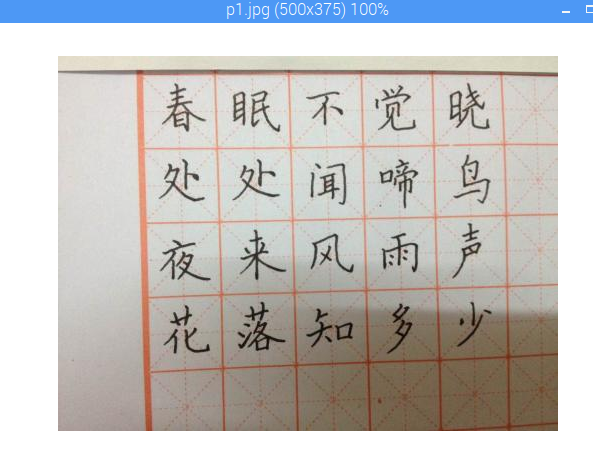 p1.jpg (500x375) 100%
春眠不觉晓
处处闻啼鸟
夜来风雨声
花落知多少